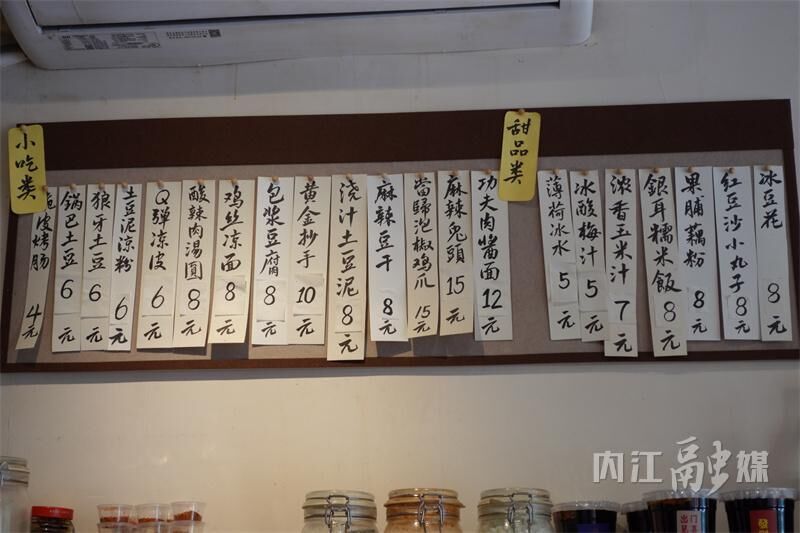 小吃类
脆皮烤肠 4元
锅巴土豆 6元
狼牙土豆 6元
土豆泥凉粉 6元
Q弹凉皮 6元
酸辣肉湯圓 8元
鸡丝凉面 8元
包浆豆腐 8元
黄金抄手 10元
浇汁土豆泥 8元
麻辣豆干 8元
當歸泡椒鸡爪 15元
麻辣兔頭 15元
功夫肉醬面 12元
甜品类
薄荷冰水 5元
冰酸梅汁 5元
浓香玉米汁 7元
銀耳糯米飯 8元
果脯藕粉 8元
红豆沙小丸子 8元
冰豆花 8元
内江融媒